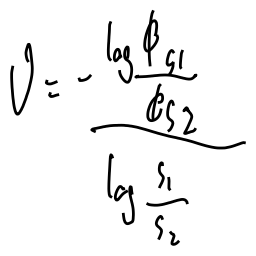 ν = - \frac{\log \frac{\phi_{S1}}{\phi_{S2}}}{\log \frac{S_1}{S_2}}